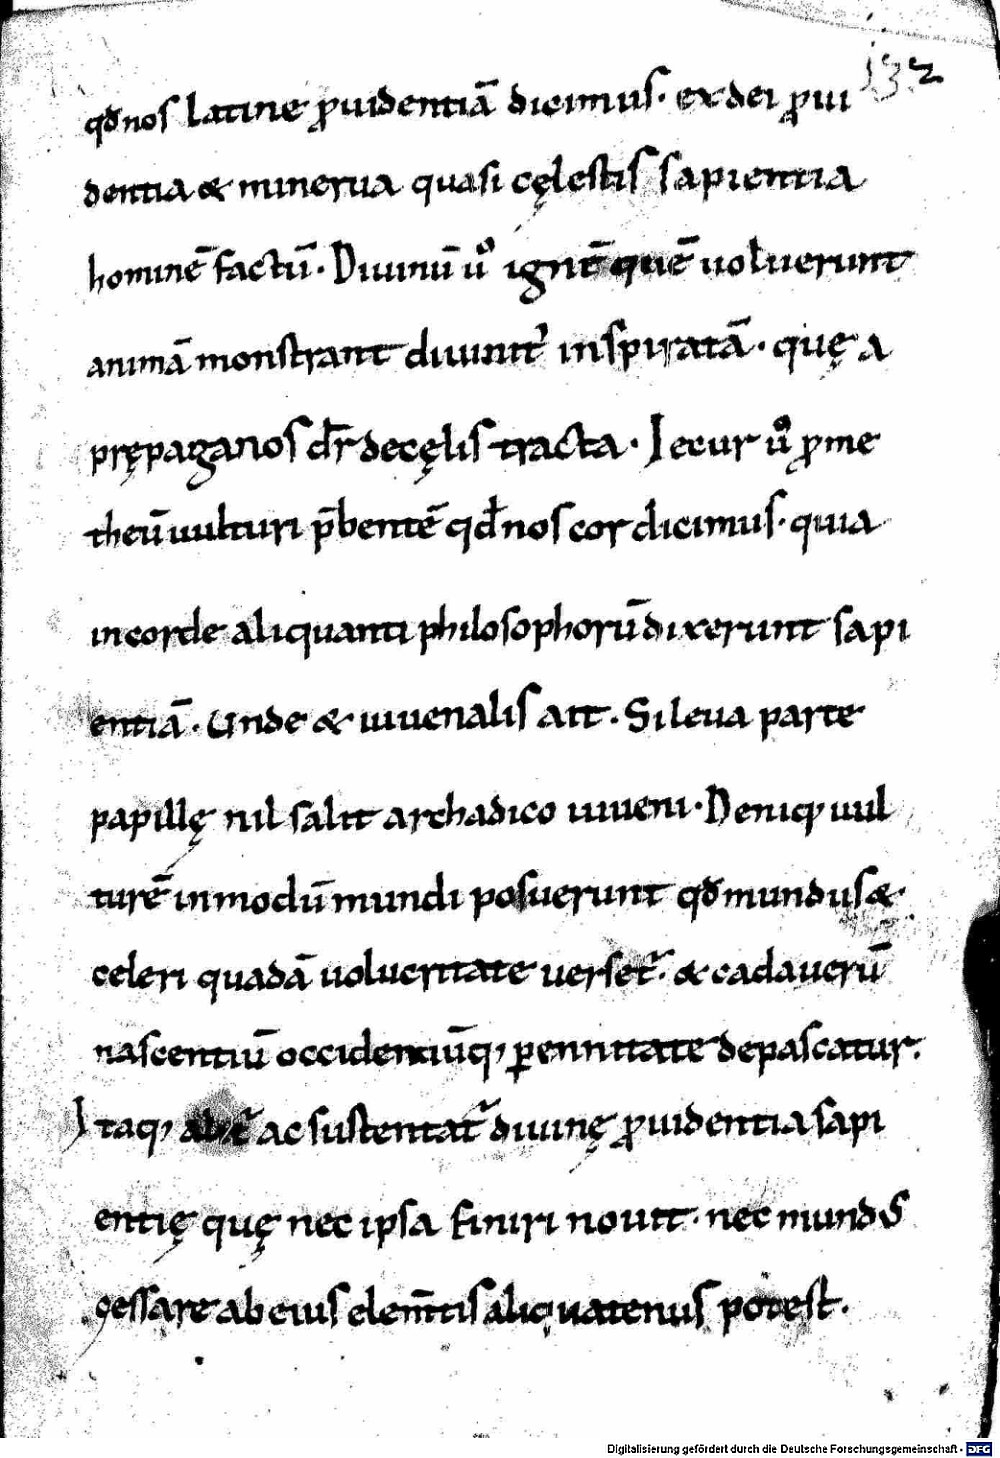 132
qđ nos latine ꝓuidentiā dicimus. ex dei ꝓui
dentia & minerua quasi cęlestis sapientia
hominē factū. Diuinū ů ignē quē uoluerunt
animā monstrant diuinit᷒ inspiratā. quę a
prępaganos dr̄ de cęlis tracta. Iecur ů ꝓme
theū uulturi p̄bentē qđ nos cor dicimus. quia
in corde aliquanti philosophorū dixerunt sapi
entiā. Unde & iuuenalis ait. Si leua parte
papillę nil salit archadico iuueni. Deniq; uul
turē in modū mundi posuerunt qđ mundus &
celeri quadā uolucritate uerset᷒. & cadauerū
nascentiū occidentiūq; ꝑennitate depascatur.
Itaq; alit᷒ ac sustentat᷒ diuinę ꝓuidentia sapi
entię quę nec ipsa finiri nouit. nec mundꝰ
cessare ab eius elem̄tis aliquatenus potest.
Digitalisierung gefördert durch die Deutsche Forschungsgemeinschaft - DFG